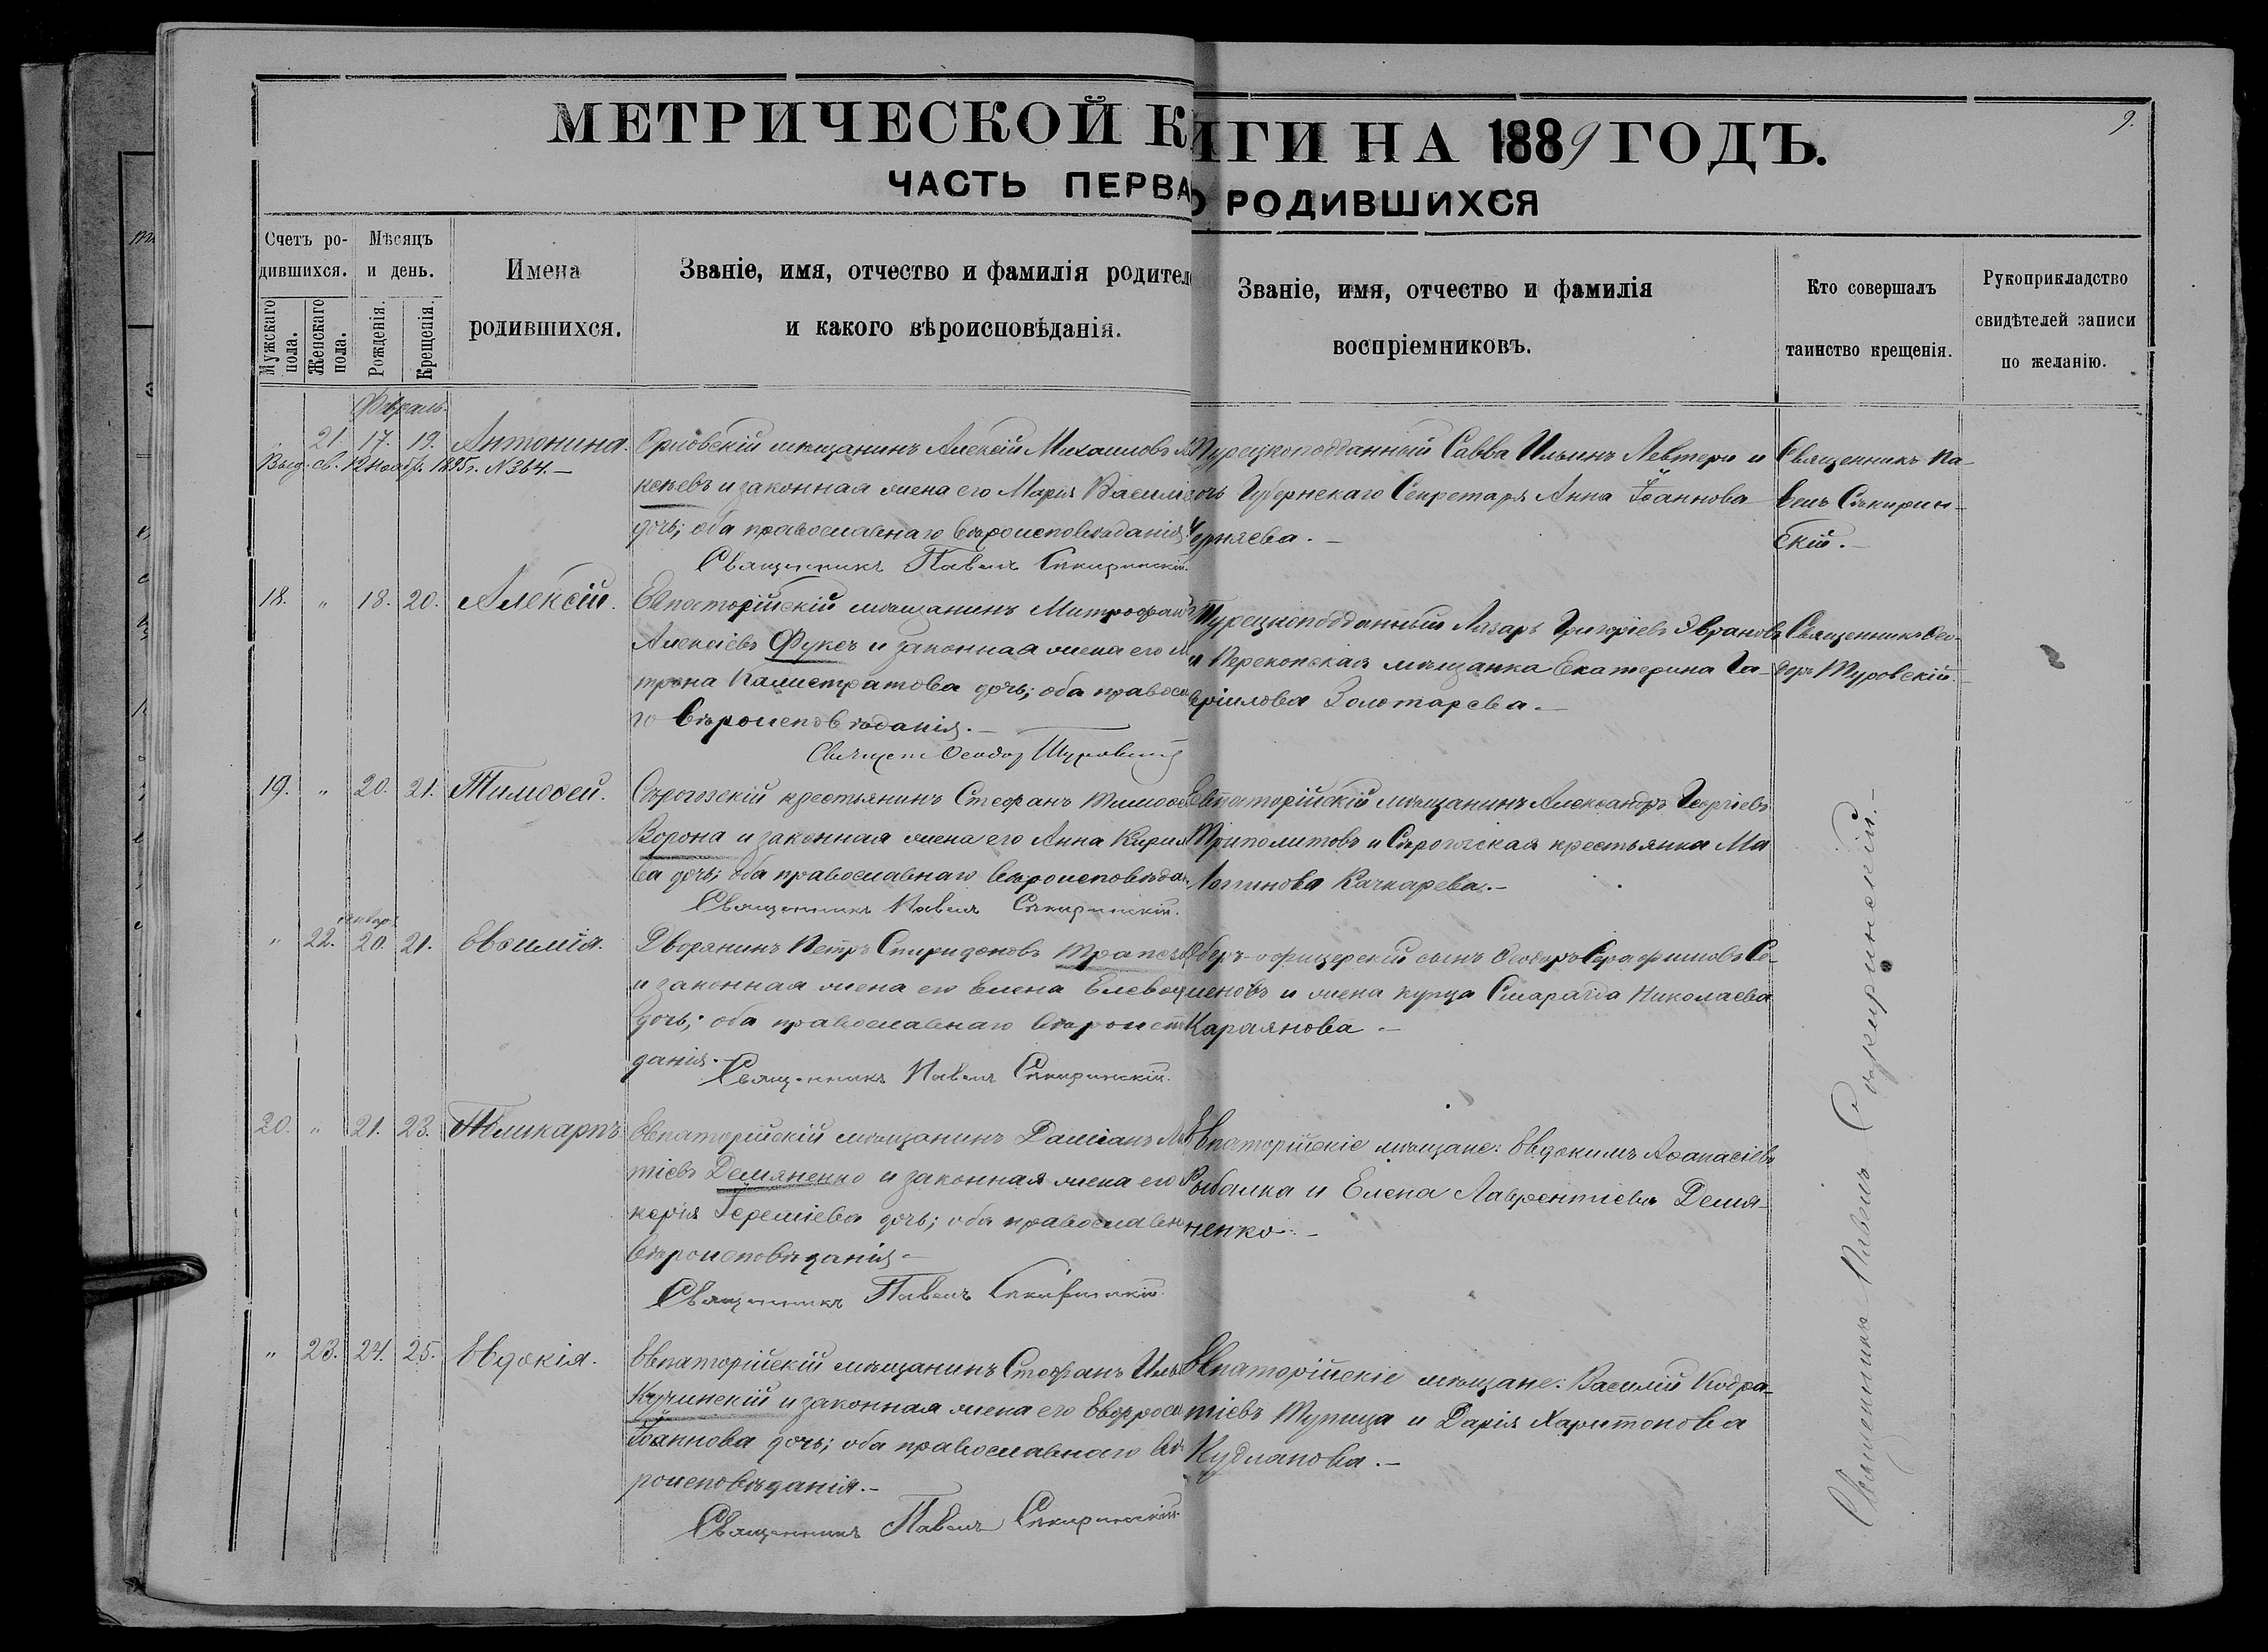 МЕТРИЧЕСКОЙ К
ИГИ НА 1889 ГОДЪ.
9.
ЧАСТЬ ПЕРВА
О РОДИВШИХСЯ
Счетъ ро-
дившихся.
Мужскаго
пола.
Женскаго
пола.
Мѣсяцъ
и день.
Рожденія.
Крещенія.
Имена
родившихся.
Званіе, имя, отчество и фамилія родител
и какого вѣроисповѣданія.
Званіе, имя, отчество и фамилія
воспріемниковъ.
Кто совершалъ
таинство крещенія.
Рукоприкладство
свидѣтелей записи
по желанію.
Февраль.
21. 17. 19. Антонина.
Выд. св. 12 нояб. 1895 г. N 364.
Орловскій мѣщанинъ Алексѣй Михаиловъ
и законная жена его Марія Василіе
дочь; оба православнаго вѣроисповѣданія.
Священникъ Павелъ Сѣкиринскій.
Турецкоподданный Савва Ильинъ Левтери и
дочь Губернскаго Секретаря Анна Іоаннова
Черняева.
Священникъ Па-
велъ Сѣкирин-
скій.
18. " 18. 20. Алексій.
Евпаторійскій мѣщанинъ Митрофанъ
Алексіевъ Фуксъ и законная жена его М
трона Калистратова дочь; оба правосл
го вѣроисповѣданія.
Священ Ѳеодор Туровскій
Турецкоподданный Лазарь Григоріевъ Яврановъ
и Перекопская мѣщанка Екатерина Га-
вріилова Золотарева.
Священникъ Ѳео-
доръ Туровскій.
19. " 20. 21. Тимоѳей.
Сѣрогозскій крестьянинъ Стефанъ Тимоѳе
Ворона и законная жена его Анна Кирил
ва дочь; оба православнаго вѣроисповѣда.
Священникъ Павелъ Сѣкиринскій.
Евпаторійскій мѣщанинъ Александръ Георгіевъ
Триполитовъ и Сѣрогозская крестьянка Ма
Логинова Качкарева.
январь
" 22. 20. 21. Евѳимія.
Дворянинъ Петръ Спиридоновъ Трапез
и законная жена его Елена Елевѳ
дочь; оба православнаго вѣроисп
данія.
Священникъ Павелъ Сѣкиринскій.
Оберъ-офицерскій сынъ Ѳеодоръ Серафимовъ Се-
меновъ и жена купца Смарагда Николаева
Караянова
20. " 21. 23. Поликарпъ
Евпаторійскій мѣщанинъ Даміанъ
тіевъ Демяненко и законная жена его
керія Іереміева дочь; оба православн
вѣроисповѣданія
Священникъ Павелъ Сѣкиринскій.
Евпаторійскіе мѣщане: Евдокимъ Аѳанасіевъ
Рыбалка и Елена Лаврентіева Демя-
ненко.
" 23. 24. 25. Евдокія.
Евпаторійскій мѣщанинъ Стефанъ Иль
Кучинскій и законная жена его Евфроси
Іоаннова дочь; оба православнаго вѣ
роисповѣданія.
Священникъ Павелъ Сѣкиринскій.
Евпаторійскіе мѣщане: Василій Кодра-
тіевъ Тупица и Дарія Харитонова
Кудланова.
Священникъ Павелъ Сѣкиринскій.